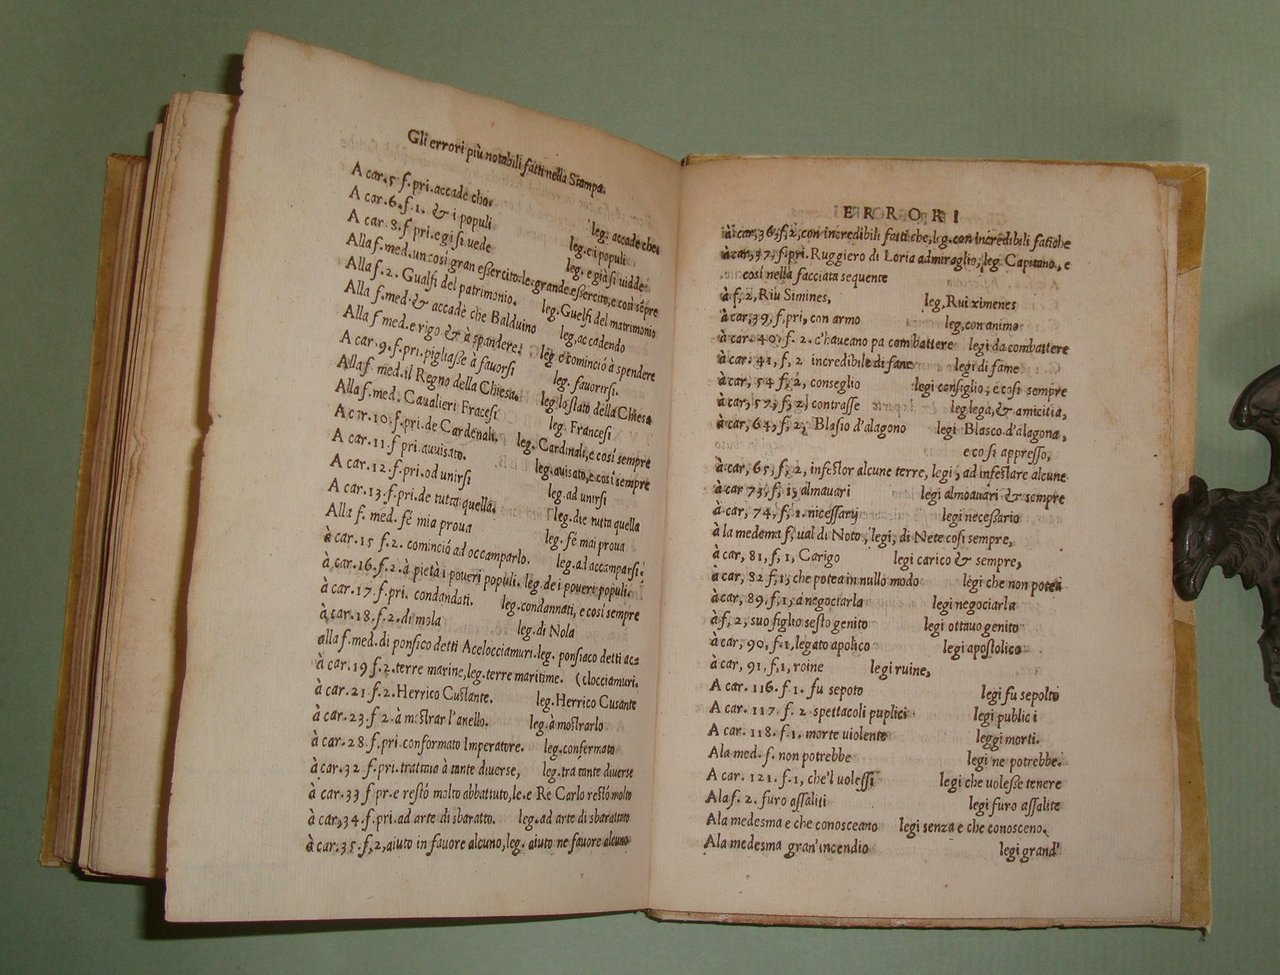 Gli errori più notabili fatti nella Stampa.
A car. 5 f. pri. accadè cho. leg. accade che.
A car. 6. f. 1. & i populi leg. e i populi
A car. 8. f. pri. egi si uede leg. e già si uidde.
Alla f. med. un cosi gran essercito. le. grande essercito, e cosi sẽpre
Alla f. 2. Gualfi del patrimonio. leg. Guelfi del matrimonio
Alla f. med. & accadè che Balduino leg. accadendo
Alla f med. e rigo & à spandere. leg. e cominciò à spendere
A car. 9. f. pri. pigliasse à fauorsi leg. fauorirsi.
Alla f. med. il Regno della Chiesa. leg. lo stato della Chiesa
Alla f. med. Caualieri Fracesi leg. Francesi
A car. 10. f. pri. de Cardenali. leg. Cardinali, e cosi sempre
A car. 11. f pri. auuisato. leg. auisato, e cosi sempre
A car. 12. f. pri. od unirsi leg. ad unirsi
A car. 13. f. pri. de tutta quella. leg. die tutta quella
Alla f. med. fè mia proua leg. fè mai proua
à car. 15 f. 2. cominciò ad occamparlo. leg. ad accamparsi.
à car. 16. f. 2. à pietà i poueri populi. leg. de i poueri populi.
à car. 17. f. pri. condandati. leg. condannati, e cosi sempre
à car. 18. f. 2. di mola leg. di Nola
alla f. med. di ponfico detti Acelocciamuri. leg. ponfiaco detti ac=
à car. 19 f. 2. terre marine, leg. terre maritime. (clocciamuri.
à car. 21 f. 2. Herrico Custante. leg. Herrico Cusante
à car. 23. f 2. à mostrar l'anello. leg. à mostrarlo
à car. 28. f. pri. conformato Imperatore. leg. confermato
à car. 32 f. pri. trattaua à tante diuerse, leg. tra tante diuerse
à car. 33 f pr. e restò molto abbattuto, le. e Re Carlo restò molto
à car. 34. f. pri. ad arte di sbaratto. leg. ad arte di sbarattato
à car. 35. f, 2, aiuto in fauore alcuno, leg. aiuto ne fauore alcuno
ERRORI
à car, 36, f, 2, con incredibili fatti che, leg. con incredibili fatiche
à car, 37, f. pri. Ruggiero di Loria admiraglio, leg. Capitano, e
cosi nella facciata sequente
à f, 2, Riu Simines, leg, Rui ximenes
à car. 39, f, pri, con armo leg, con animo
à car. 40, f. 2. c'haueano pa combattere legi da combattere
à car. 41, f, 2 incredibile di fane legi di fame
à car, 54 f, 2, conseglio legi consiglio, e cosi sempre
à car, 57, f, 2, contrasse leg lega, & amicitia,
à car, 64, f, 2, Blasio d'alagono legi Blasco d'alagona,
e cosi appresso,
à car, 65, f, 2, infestlor alcune terre, legi, ad infestare alcune
à car 73, f, 1, almauari legi almoauari & sempre
à car, 74, f, 1. nicessarij legi necessario
à la medema f, ual di Noto, legi, di Nete cosi sempre,
à car, 81, f, 1, Carigo legi carico & sempre,
à car, 82 f, 1, che potea in nullo modo legi che non potea
à car, 89, f, 1, a negociarla legi negociarla
à f, 2, suo figlio sesto genito legi ottauo genito
à car, 90, f, 1, legato apolico legi apostolico
à car, 91, f, 1, roine legi ruine,
A car. 116. f. 1. fu sepoto legi fu sepolto
A car. 117. f. 2 spettacoli puplici legi publici
A car. 118. f. 1. morte uiolente leggi morti.
Ala med. f. non potrebbe legi ne potrebbe.
A car. 121. f. 1, che'l uolessi legi che uolesse tenere
Ala f. 2. furo assaliti legi furo assalite
Ala medesma e che conosceano legi senza e che conosceno,
Ala medesma gran'incendio legi grand'